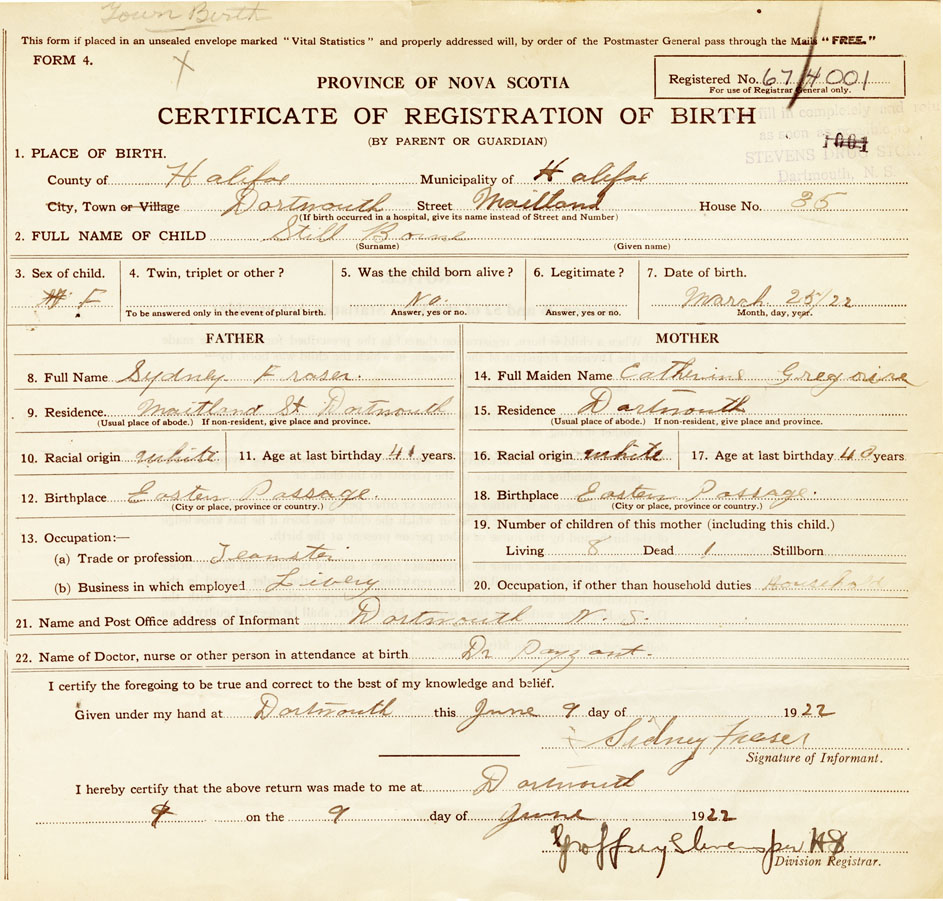 Town Birth
This form if placed in an unsealed envelope marked "Vital Statistics" and properly addressed will, by order of the Postmaster General pass through the Mails "FREE."
FORM 4.
X
PROVINCE OF NOVA SCOTIA
Registered No. 67/4001
For use of Registrar General only.
CERTIFICATE OF REGISTRATION OF BIRTH
(BY PARENT OR GUARDIAN)
fill in completely and
as soon as possible to
STEVENS DRUG STORE
Dartmouth, N. S.
1001
1. PLACE OF BIRTH.
County of Halifax Municipality of Halifax
City, Town or Village Dartmouth Street Maitland House No. 35
(If birth occurred in a hospital, give its name instead of Street and Number)
2. FULL NAME OF CHILD Still Borne
(Surname) (Given name)
3. Sex of child. 4. Twin, triplet or other? 5. Was the child born alive? 6. Legitimate? 7. Date of birth.
F No. March 25/22
To be answered only in the event of plural birth. Answer, yes or no. Answer, yes or no. Month, day, year.
FATHER MOTHER
8. Full Name Sydney Fraser. 14. Full Maiden Name Catherine Gregoire
9. Residence. Maitland St Dartmouth 15. Residence Dartmouth
(Usual place of abode.) If non-resident, give place and province. (Usual place of abode.) If non-resident, give place and province.
10. Racial origin white 11. Age at last birthday 41 years. 16. Racial origin white 17. Age at last birthday 40 years
12. Birthplace Eastern Passage. 18. Birthplace Eastern Passage.
(City or place, province or country.) (City or place, province or country.)
13. Occupation:— 19. Number of children of this mother (including this child.)
(a) Trade or profession Teamster Living 8 Dead 1 Stillborn
(b) Business in which employed Livery 20. Occupation, if other than household duties Household
21. Name and Post Office address of Informant Dartmouth N. S.
22. Name of Doctor, nurse or other person in attendance at birth Dr Payzant.
I certify the foregoing to be true and correct to the best of my knowledge and belief.
Given under my hand at Dartmouth this June 9 day of 1922
Sidney Fraser
Signature of Informant.
I hereby certify that the above return was made to me at Dartmouth
9 on the 9 day of June 1922
Geoffrey Stevens per HS
Division Registrar.